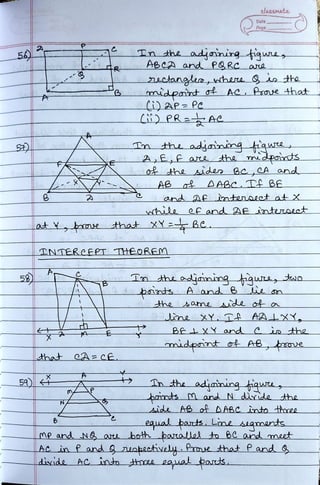 classmate
Date
Page
56) In the adjoining figure,
ABCD and PQRC are
rectangles, where Q is the
midpoint of AC. Prove that
(i) DP = PC
(ii) PR = 1/2 AC
D P C
Q R
A B
57) In the adjoining figure,
D, E, F are the midpoints
of the sides BC, CA and
AB of ΔABC. If BE
and DF intersect at X
while CF and DE intersect
at Y, prove that XY = 1/4 BC.
A
F E
X Y
B D C
INTERCEPT THEOREM
58) In the adjoining figure, two
points A and B lie on
the same side of a
line XY. If AD⊥XY,
BE⊥XY and C is the
midpoint of AB, prove
that CD = CE.
A C B
X D M E Y
59) In the adjoining figure,
points M and N divide the
side AB of ΔABC into three
equal parts. Line segments
MP and NQ are both parallel to BC and meet
AC in P and Q respectively. Prove that P and Q
divide AC into three equal parts.
X A Y
M P
N Q
B C